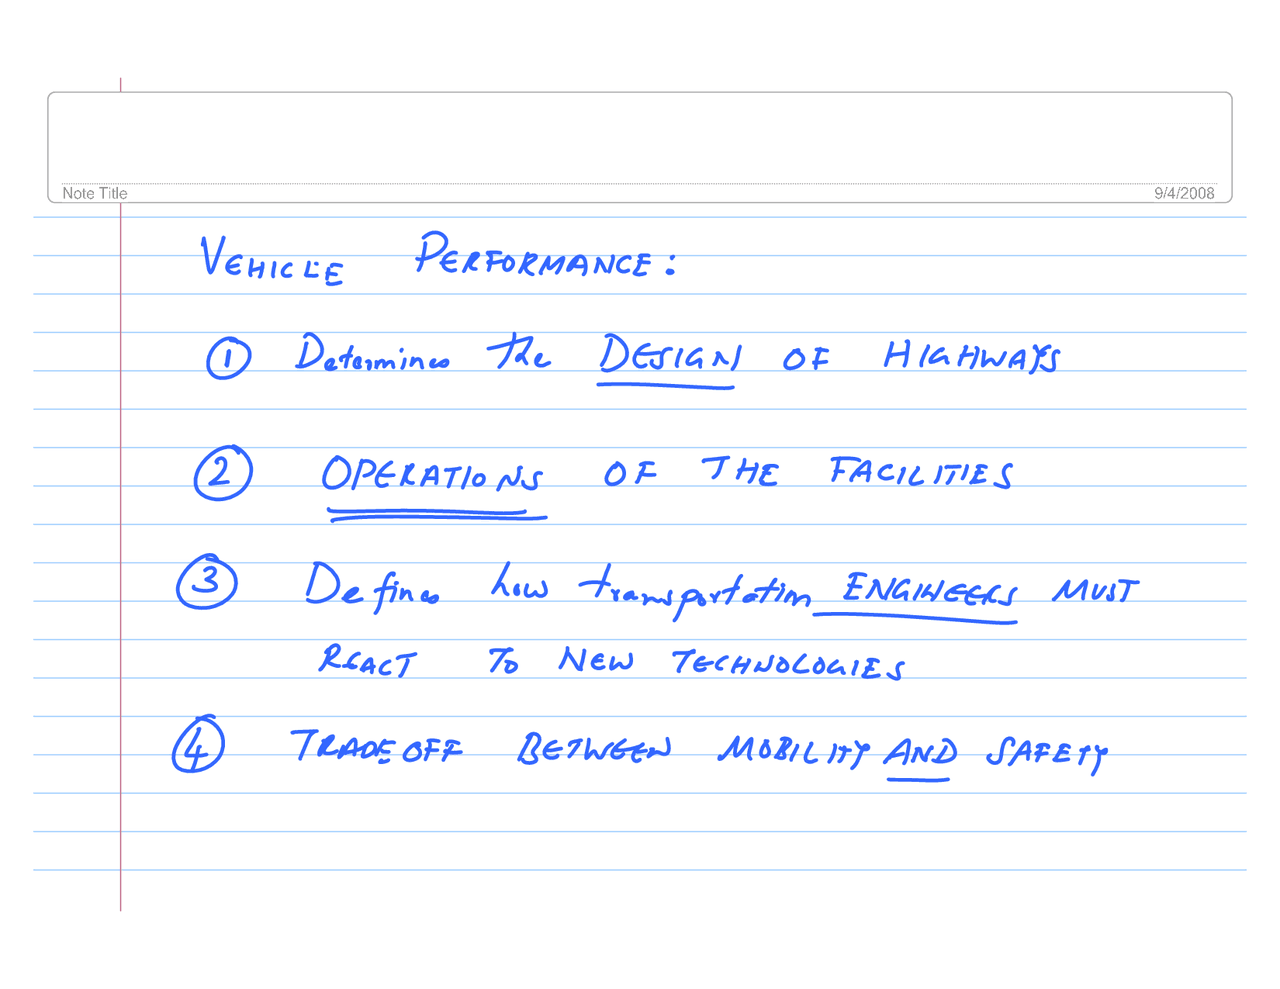 Note Title
9/4/2008
VEHICLE PERFORMANCE:
1 Determines the DESIGN OF HIGHWAYS
2 OPERATIONS OF THE FACILITIES
3 Defines how transportation ENGINEERS MUST
REACT TO NEW TECHNOLOGIES
4 TRADEOFF BETWEEN MOBILITY AND SAFETY